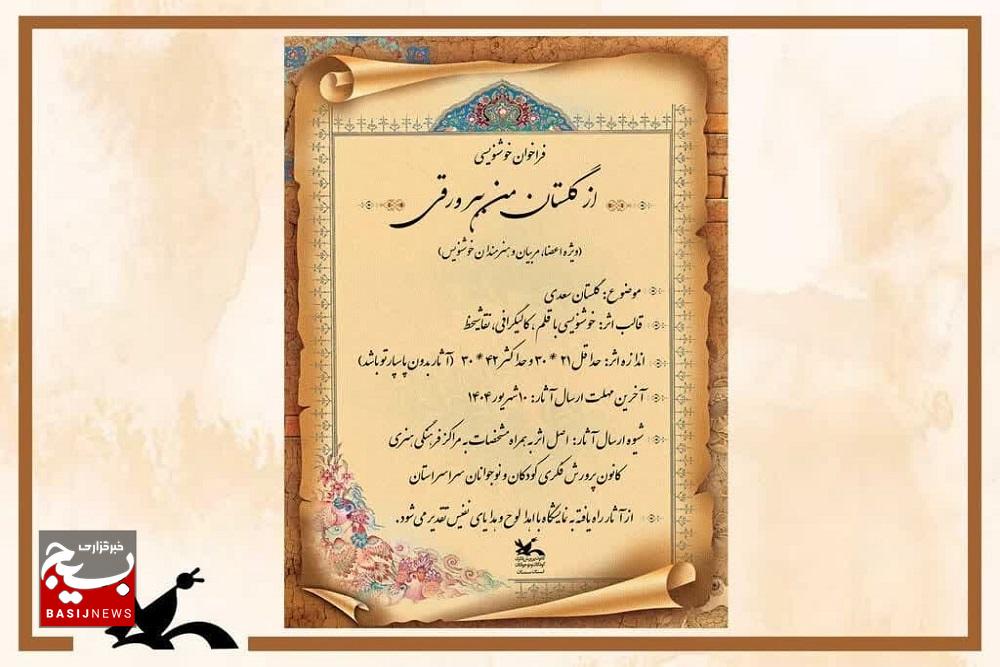 فراخوان خوشنویسی
از گلستان من ببر ورقی
(ویژه اعضا، مربیان و هنرمندان خوشنویس)
موضوع: گلستان سعدی
قالب اثر: خوشنویسی با قلم، کالیگرافی، نقاشیخط
اندازه اثر: حداقل ۲۱ * ۳۰ و حداکثر ۴۲ * ۳۰ (آثار بدون پاسپارتو باشد)
آخرین مهلت ارسال آثار: ۱۰ شهریور ۱۴۰۴
شیوه ارسال آثار: اصل اثر به همراه مشخصات به مراکز فرهنگی هنری
کانون پرورش فکری کودکان و نوجوانان سراسر استان
از آثار راه یافته به نمایشگاه با اهدا لوح و هدایای نفیس تقدیر می شود.
کانون پرورش فکری
کودکان و نوجوانان
استان سمنان
خبرگزاری
بسیج
BASIJNEWS